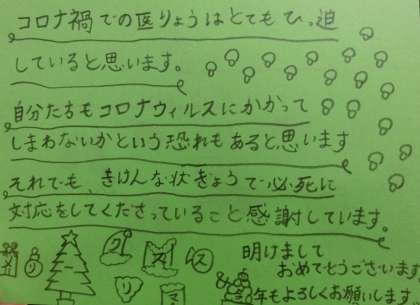 コロナ禍での医りょうはとてもひっ迫
していると思います。
自分たちもコロナウィルスにかかって
しまわないかという恐れもあると思います
それでも、きけんな状きょうで必死に
対応をしてくださっていること感謝しています。
クリスマス
明けまして
おめでとうございます
年もよろしくお願いします